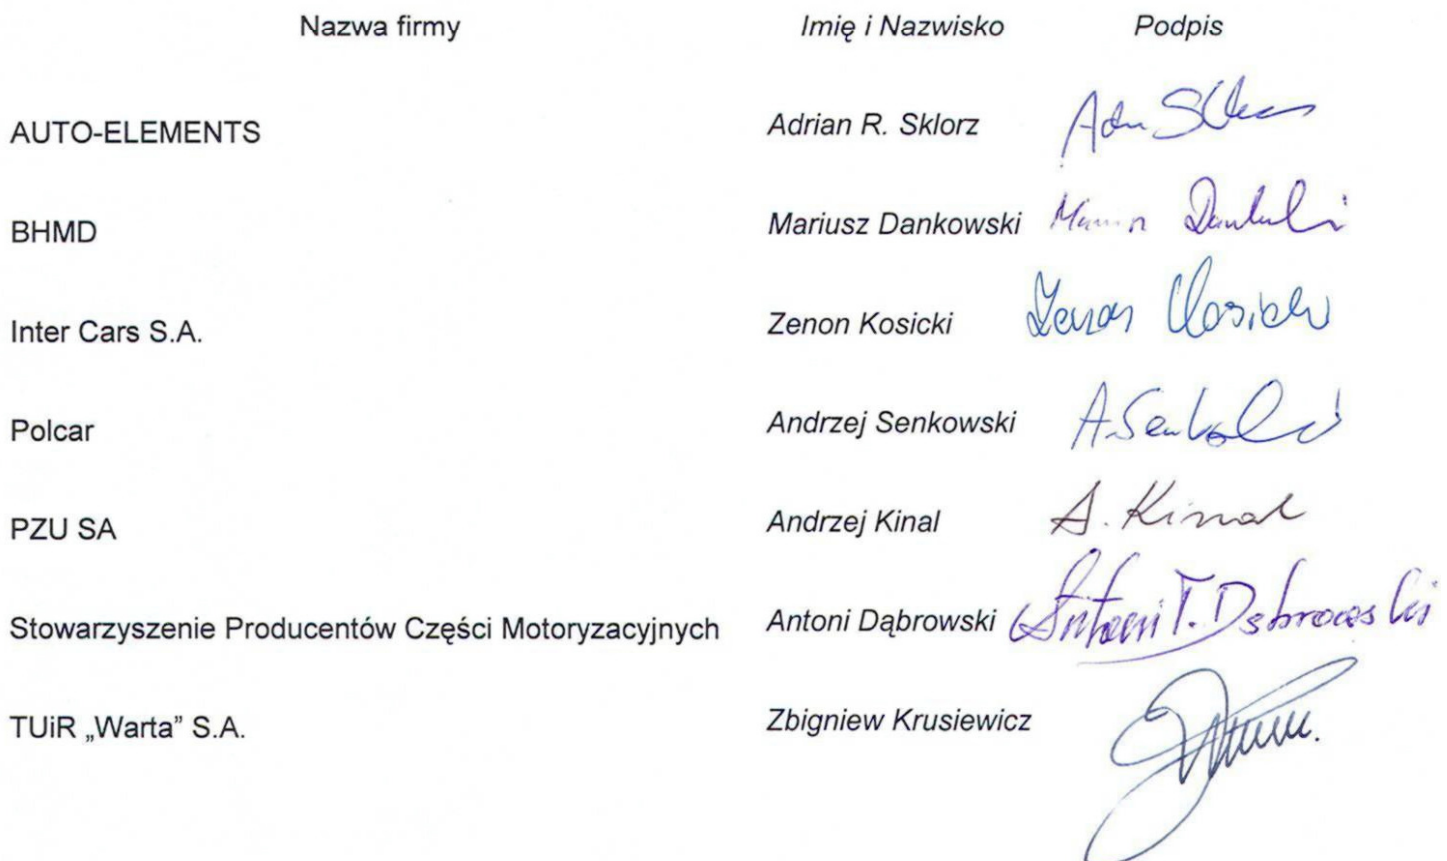 Nazwa firmy Imię i Nazwisko Podpis
AUTO-ELEMENTS Adrian R. Sklorz
BHMD Mariusz Dankowski
Inter Cars S.A. Zenon Kosicki Zenon Kosicki
Polcar Andrzej Senkowski A. Senkowski
PZU SA Andrzej Kinal A. Kinal
Stowarzyszenie Producentów Części Motoryzacyjnych Antoni Dąbrowski Antoni T. Dąbrowski
TUiR „Warta” S.A. Zbigniew Krusiewicz